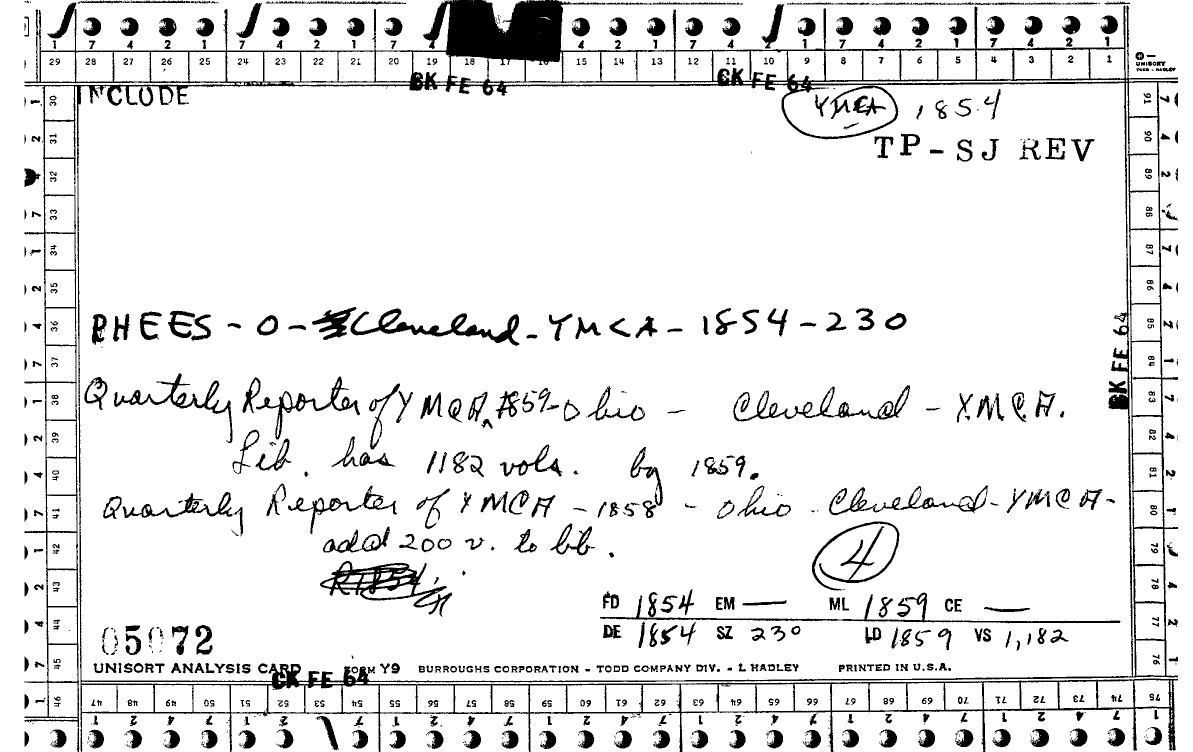 7 4 2 1 7 4 2 1 7 4 4 2 1 7 4 2 1 7 4 2 1 7 4 2 1
29 28 27 26 25 24 23 22 21 20 19 18 17 16 15 14 13 12 11 10 9 8 7 6 5 4 3 2 1
UNISORT
TODD - HADLEY
CK FE 64 CK FE 64
INCLUDE
YMCA 1854
TP-SJ REV
RHEES - O - Cleveland - YMCA - 1854 - 230
Quarterly Reporter of YMCA, 1859 - Ohio - Cleveland - YMCA.
Lib. has 1182 vols. by 1859.
Quarterly Reporter of YMCA - 1858 - Ohio - Cleveland - YMCA -
add 200 v. to lib.
4
FD 1854 EM — ML 1859 CE —
DE 1854 SZ 230 LD 1859 VS 1,182
05072
UNISORT ANALYSIS CARD FORM Y9 BURROUGHS CORPORATION - TODD COMPANY DIV. - L HADLEY PRINTED IN U.S.A.
CK FE 64
30 31 32 33 34 35 36 37 38 39 40 41 42 43 44 45 46
91 90 89 88 87 86 85 84 83 82 81 80 79 78 77 76 75
CK FE 64
47 48 49 50 51 52 53 54 55 56 57 58 59 60 61 62 63 64 65 66 67 68 69 70 71 72 73 74